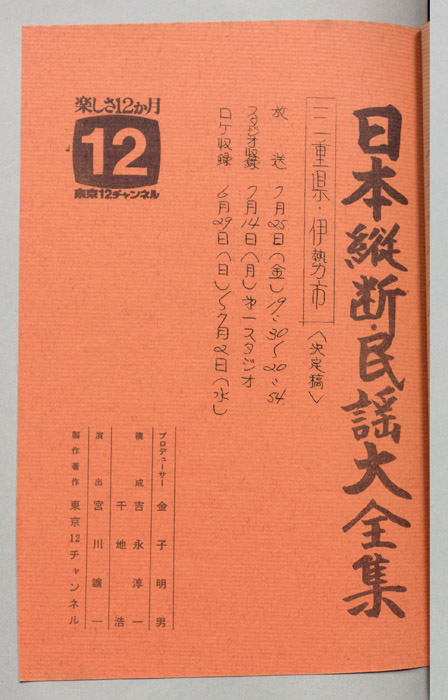 日本縦断・民謡大全集
三重県・伊勢市
〈決定稿〉
放送 7月25日(金)19:30~20:54
スタジオ収録 7月14日(月)オ一スタジオ
ロケ収録 6月29日(日)~7月2日(水)
楽しさ12か月
12
東京12チャンネル
プロデューサー 金子明男
構成 吉永淳一
千地浩
演出 宮川鑛一
製作著作 東京12チャンネル